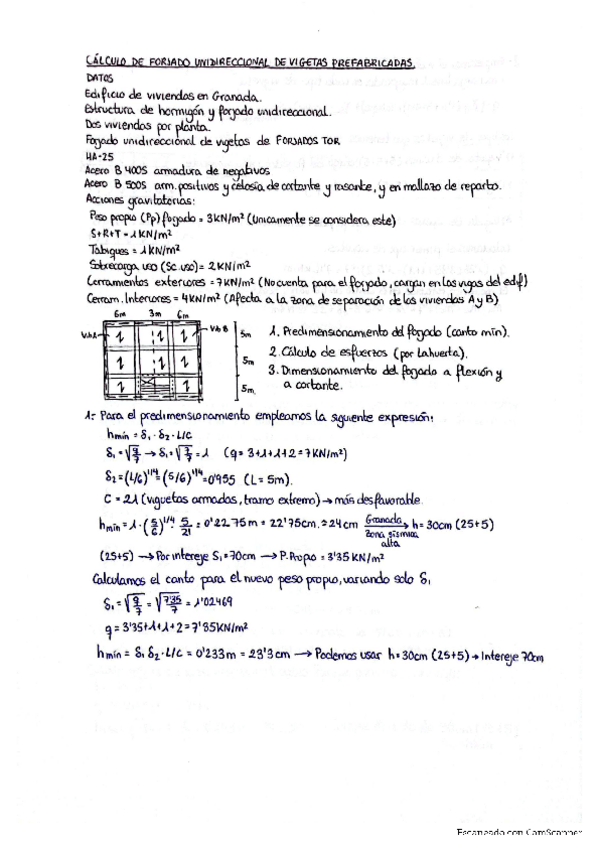 CÁLCULO DE FORJADO UNIDIRECCIONAL DE VIGETAS PREFABRICADAS.
DATOS
Edificio de viviendas en Granada.
Estructura de hormigón y forjado unidireccional.
Dos viviendas por planta.
Forjado unidireccional de vigetas de FORJADOS TOR
HA-25
Acero B 400S armadura de negativos
Acero B 500S arm. positivos y celosía de cortante y rasante, y en mallazo de reparto.
Acciones gravitatorias:
Peso propio (Pp) forjado = 3KN/m² (Unicamente se considera este)
S+R+T = 1KN/m²
Tabiques = 1KN/m²
Sobrecarga uso (Sc. uso) = 2KN/m²
Cerramientos exteriores = 7KN/m² (No cuenta para el forjado, cargan en las vigas del edif)
Cerram. Interiores = 4KN/m² (Afecta a la zona de separación de las viviendas A y B)
6m 3m 6m
Viv. A
Viv. B
5m
5m
5m
1. Predimensionamiento del forjado (canto mín).
2. Cálculo de esfuerzos (por Lahuerta).
3. Dimensionamiento del forjado a flexión y a cortante.
1= Para el predimensionamiento empleamos la siguiente expresión:
hmín = δ₁ · δ₂ · L/C
δ₁ = √q/7 → δ₁ = √7/7 = 1 (q = 3+1+1+2 = 7KN/m²)
δ₂ = (L/6)^1/4 = (5/6)^1/4 = 0'955 (L = 5m).
C = 21 (viguetas armadas, tramo extremo) → más desfavorable.
hmín = 1 · (5/6)^1/4 · 5/21 = 0'2275m = 22'75cm. ≈ 24cm Granada Zona sísmica alta → h = 30cm (25+5)
(25+5) → Por intereje S₁ = 70cm → P. Propio = 3'35 KN/m²
Calculamos el canto para el nuevo peso propio, variando solo δ₁
δ₁ = √q/7 = √7'35/7 = 1'02469
q = 3'35+1+1+2 = 7'35KN/m²
hmín = δ₁ δ₂ · L/C = 0'233m = 23'3cm → Podemos usar h = 30cm (25+5) → Intereje 70cm
Escaneado con CamScanner